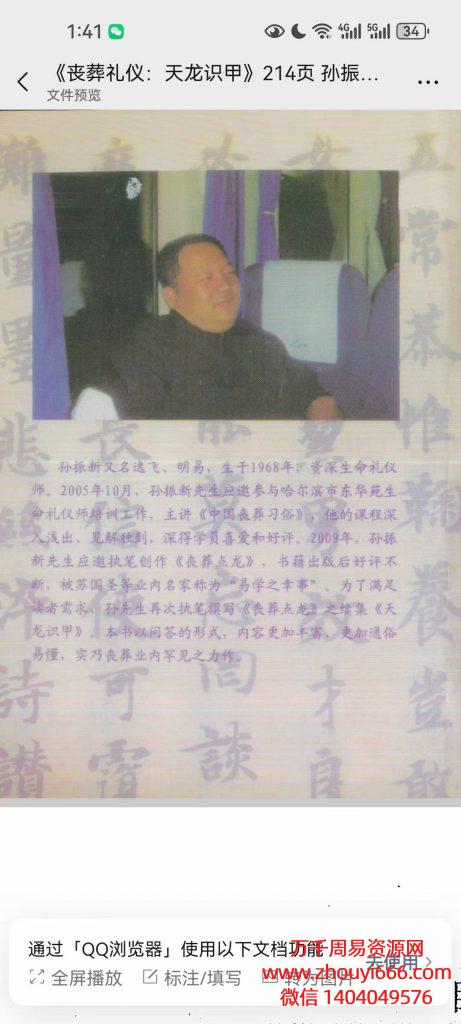 1:41
4G
5G
34
《丧葬礼仪：天龙识甲》214页 孙振...
文件预览
五常恭惟鞠養豈敢
女
才良
談
可
詩讚
孙振新又名逸飞、明易，生于1968年，资深生命礼仪
师。2005年10月，孙振新先生应邀参与哈尔滨市东华苑生
命礼仪师培训工作，主讲《中国丧葬习俗》，他的课程深
入浅出、见解独到，深得学员喜爱和好评。2009年，孙振
新先生应邀执笔创作《丧葬点龙》，书籍出版后好评不
断，被苏国圣等业内名家称为“易学之幸事”。为了满足
读者需求，孙先生再次执笔撰写《丧葬点龙》之续集《天
龙识甲》，本书以问答的形式，内容更加丰富、更加通俗
易懂，实乃丧葬业内罕见之力作。
通过「QQ浏览器」使用以下文档功能
去使用
全屏播放
标注/填写
转为图片
万千周易资源网
www.zhouyi666.com
微信 1404049576